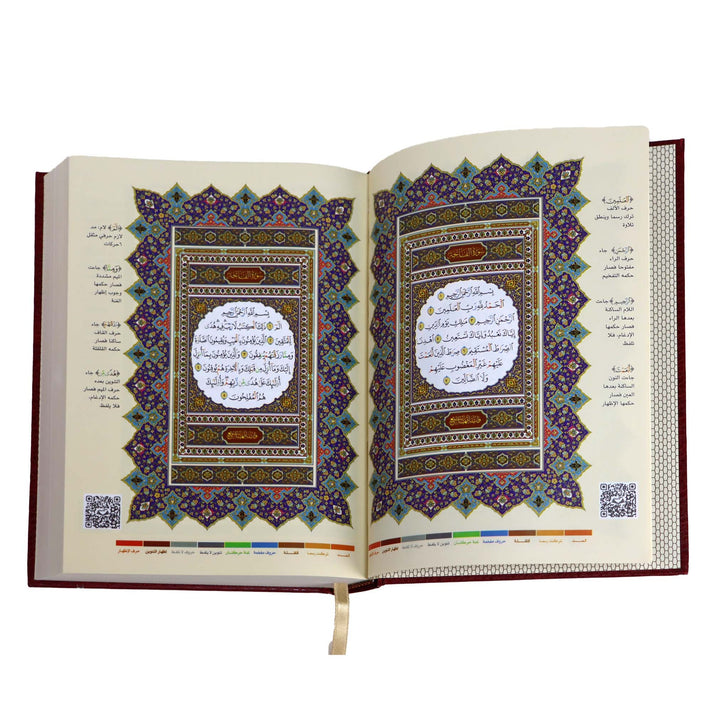 سورة الفاتحة
بِسْمِ ٱللَّهِ ٱلرَّحْمَٰنِ ٱلرَّحِيمِ ١
ٱلْحَمْدُ لِلَّهِ رَبِّ ٱلْعَٰلَمِينَ ٢
ٱلرَّحْمَٰنِ ٱلرَّحِيمِ ٣ مَٰلِكِ يَوْمِ ٱلدِّينِ ٤
إِيَّاكَ نَعْبُدُ وَإِيَّاكَ نَسْتَعِينُ ٥ ٱهْدِنَا
ٱلصِّرَٰطَ ٱلْمُسْتَقِيمَ ٦ صِرَٰطَ ٱلَّذِينَ أَنْعَمْتَ
عَلَيْهِمْ غَيْرِ ٱلْمَغْضُوبِ عَلَيْهِمْ
وَلَا ٱلضَّآلِّينَ ٧
﴿ٱلْعَٰلَمِينَ﴾
حرف الألف
ترك رسما وينطق
تلاوة
﴿ٱلرَّحْمَٰنِ﴾ جاء
حرف الراء
مفتوحا فصار
حكمه التفخيم
﴿ٱلرَّحِيمِ﴾ جاءت
اللام الساكنة
بعدها الراء
فصار حكمها
الإدغام، فلا
تلفظ.
﴿أَنْعَمْتَ﴾
جاءت النون
الساكنة بعدها
العين فصار
حكمها الإظهار
المــد
قلقلة
حروف مفخمة
غنة حركتان
تنوين لا يلفظ
بِسْمِ ٱللَّهِ ٱلرَّحْمَٰنِ ٱلرَّحِيمِ
الٓمٓ ١ ذَٰلِكَ ٱلْكِتَٰبُ لَا رَيْبَ فِيهِ هُدًى
لِّلْمُتَّقِينَ ٢ ٱلَّذِينَ يُؤْمِنُونَ بِٱلْغَيْبِ وَيُقِيمُونَ ٱلصَّلَوٰةَ
وَمِمَّا رَزَقْنَٰهُمْ يُنفِقُونَ ٣ وَٱلَّذِينَ يُؤْمِنُونَ بِمَآ أُنزِلَ
إِلَيْكَ وَمَآ أُنزِلَ مِن قَبْلِكَ وَبِٱلْءَاخِرَةِ هُمْ يُوقِنُونَ ٤
أُو۟لَٰٓئِكَ عَلَىٰ هُدًى مِّن رَّبِّهِمْ وَأُو۟لَٰٓئِكَ
هُمُ ٱلْمُفْلِحُونَ ٥
﴿الٓمٓ﴾ لام، مد
لازم حرفي مثقل
٦ حركات
جاءت
الميم مشددة
فصار حكمها
وجوب إظهار
الغنة
جاء
حرف القاف
ساكنا فصار
حكمه القلقلة
جاء
التنوين بعده
حرف الميم فصار
حكمه الإدغام،
فلا يلفظ.
المــد
قلقلة
حروف مفخمة
غنة حركتان
تنوين لا يلفظ
حروف لا تلفظ
إظهار التنوين
حرف الإظهار